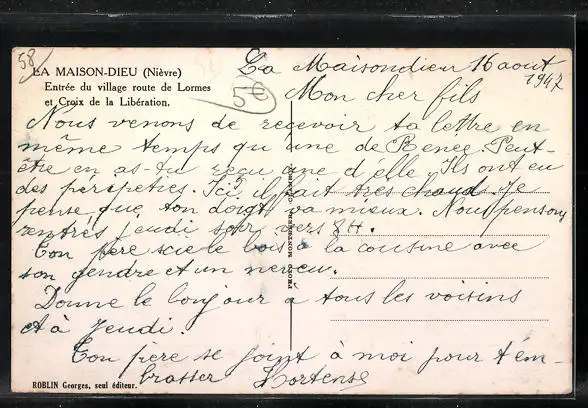 58
LA MAISON-DIEU (Nièvre)
Entrée du village route de Lormes
et Croix de la Libération.
58
La Maisondieu 16 aout
1947
Mon cher fils
Nous venons de recevoir ta lettre en
même temps qu'une de Renee. Peut-
être en as-tu reçu une d'elle. Ils ont eu
des peripeties. Ici il fait très chaud. Je
pense que ton doigt va mieux. Nous pensons
rentrés jeudi soir vers 8H.
Ton père scie le bois à la cousine avec
son gendre et un neveu.
Donne le bonjour à tous les voisins
et à Jeudi.
Ton père se joint à moi pour t'em-
brasser Hortense
PHOTO
ROBLIN Georges, seul éditeur.